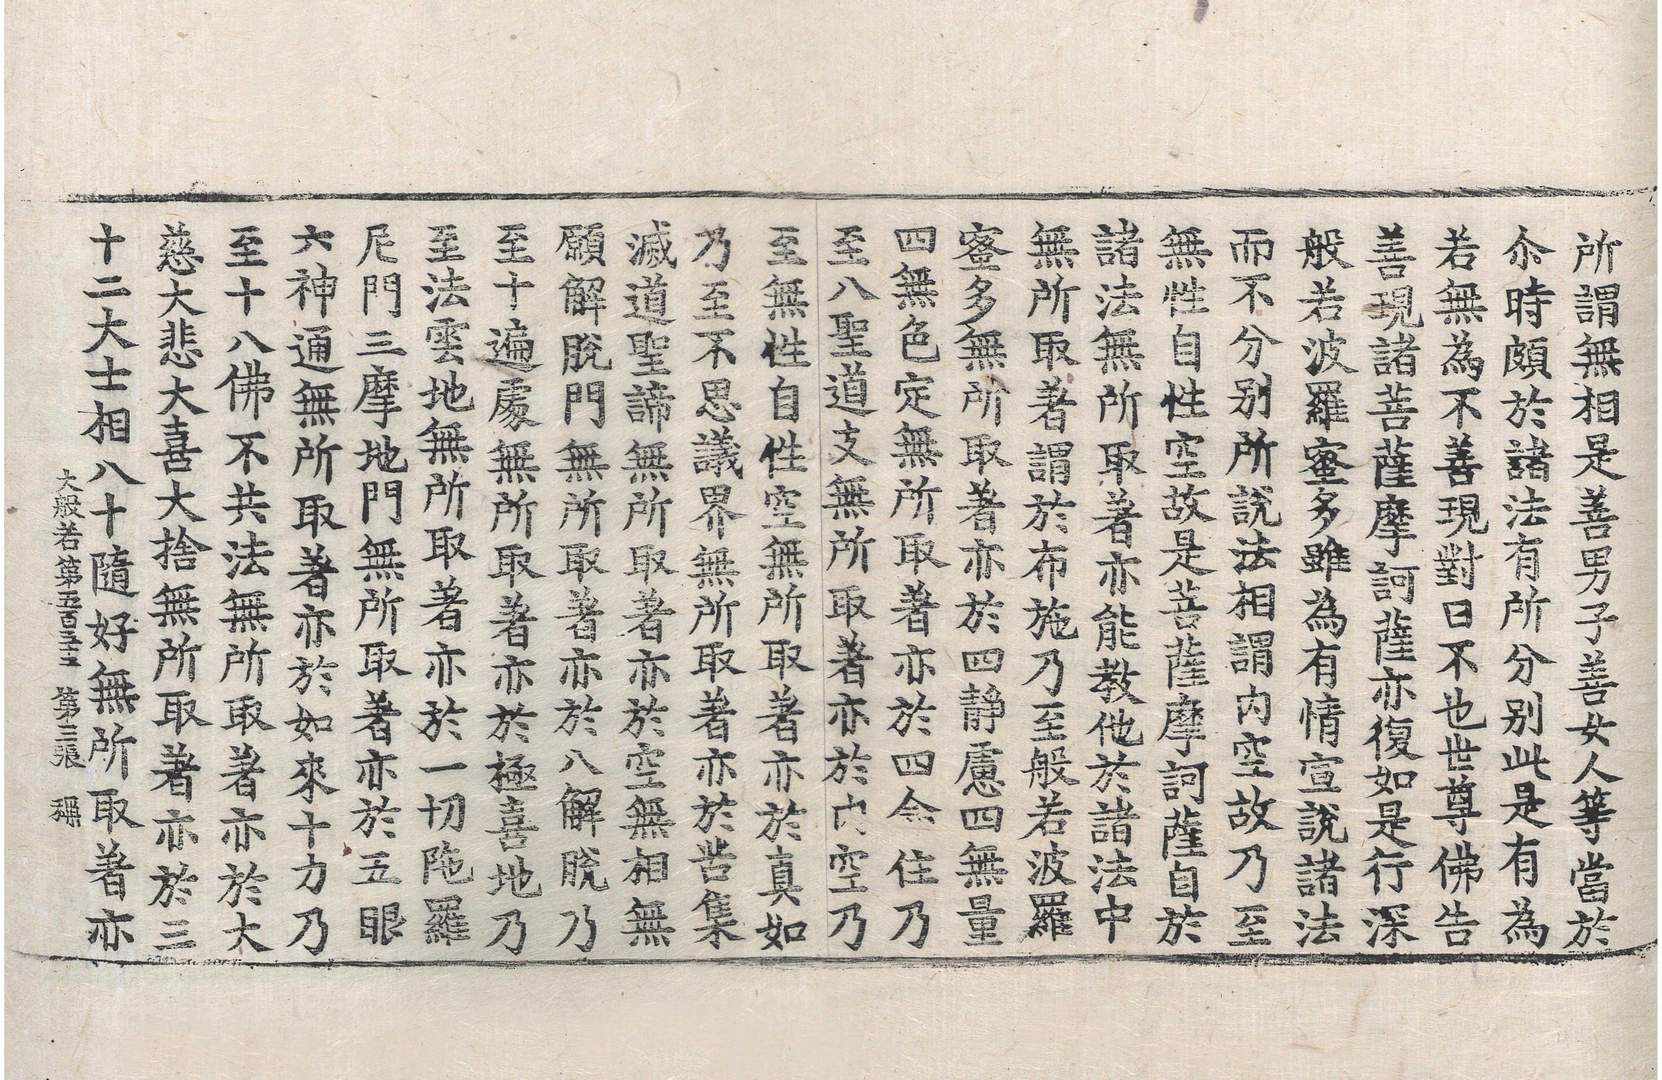 所謂無相是善男子善女人等當於
尒時頗於諸法有所分別此是有為
若無為不善現對曰不也世尊佛告
善現諸菩薩摩訶薩亦復如是行深
般若波羅蜜多雖為有情宣說諸法
而不分別所說法相謂内空故乃至
無性自性空故是菩薩摩訶薩自於
諸法無所取著亦能教他於諸法中
無所取著謂於布施乃至般若波羅
蜜多無所取著亦於四静慮四無量
四無色定無所取著亦於四念住乃
至八聖道支無所取著亦於内空乃
至無性自性空無所取著亦於真如
乃至不思議界無所取著亦於苦集
滅道聖諦無所取著亦於空無相無
願解脫門無所取著亦於八解脫乃
至十遍處無所取著亦於極喜地乃
至法雲地無所取著亦於一切陁羅
尼門三摩地門無所取著亦於五眼
六神通無所取著亦於如來十力乃
至十八佛不共法無所取著亦於大
慈大悲大喜大捨無所取著亦於三
十二大士相八十隨好無所取著亦
大般若第五百三十三 第三張